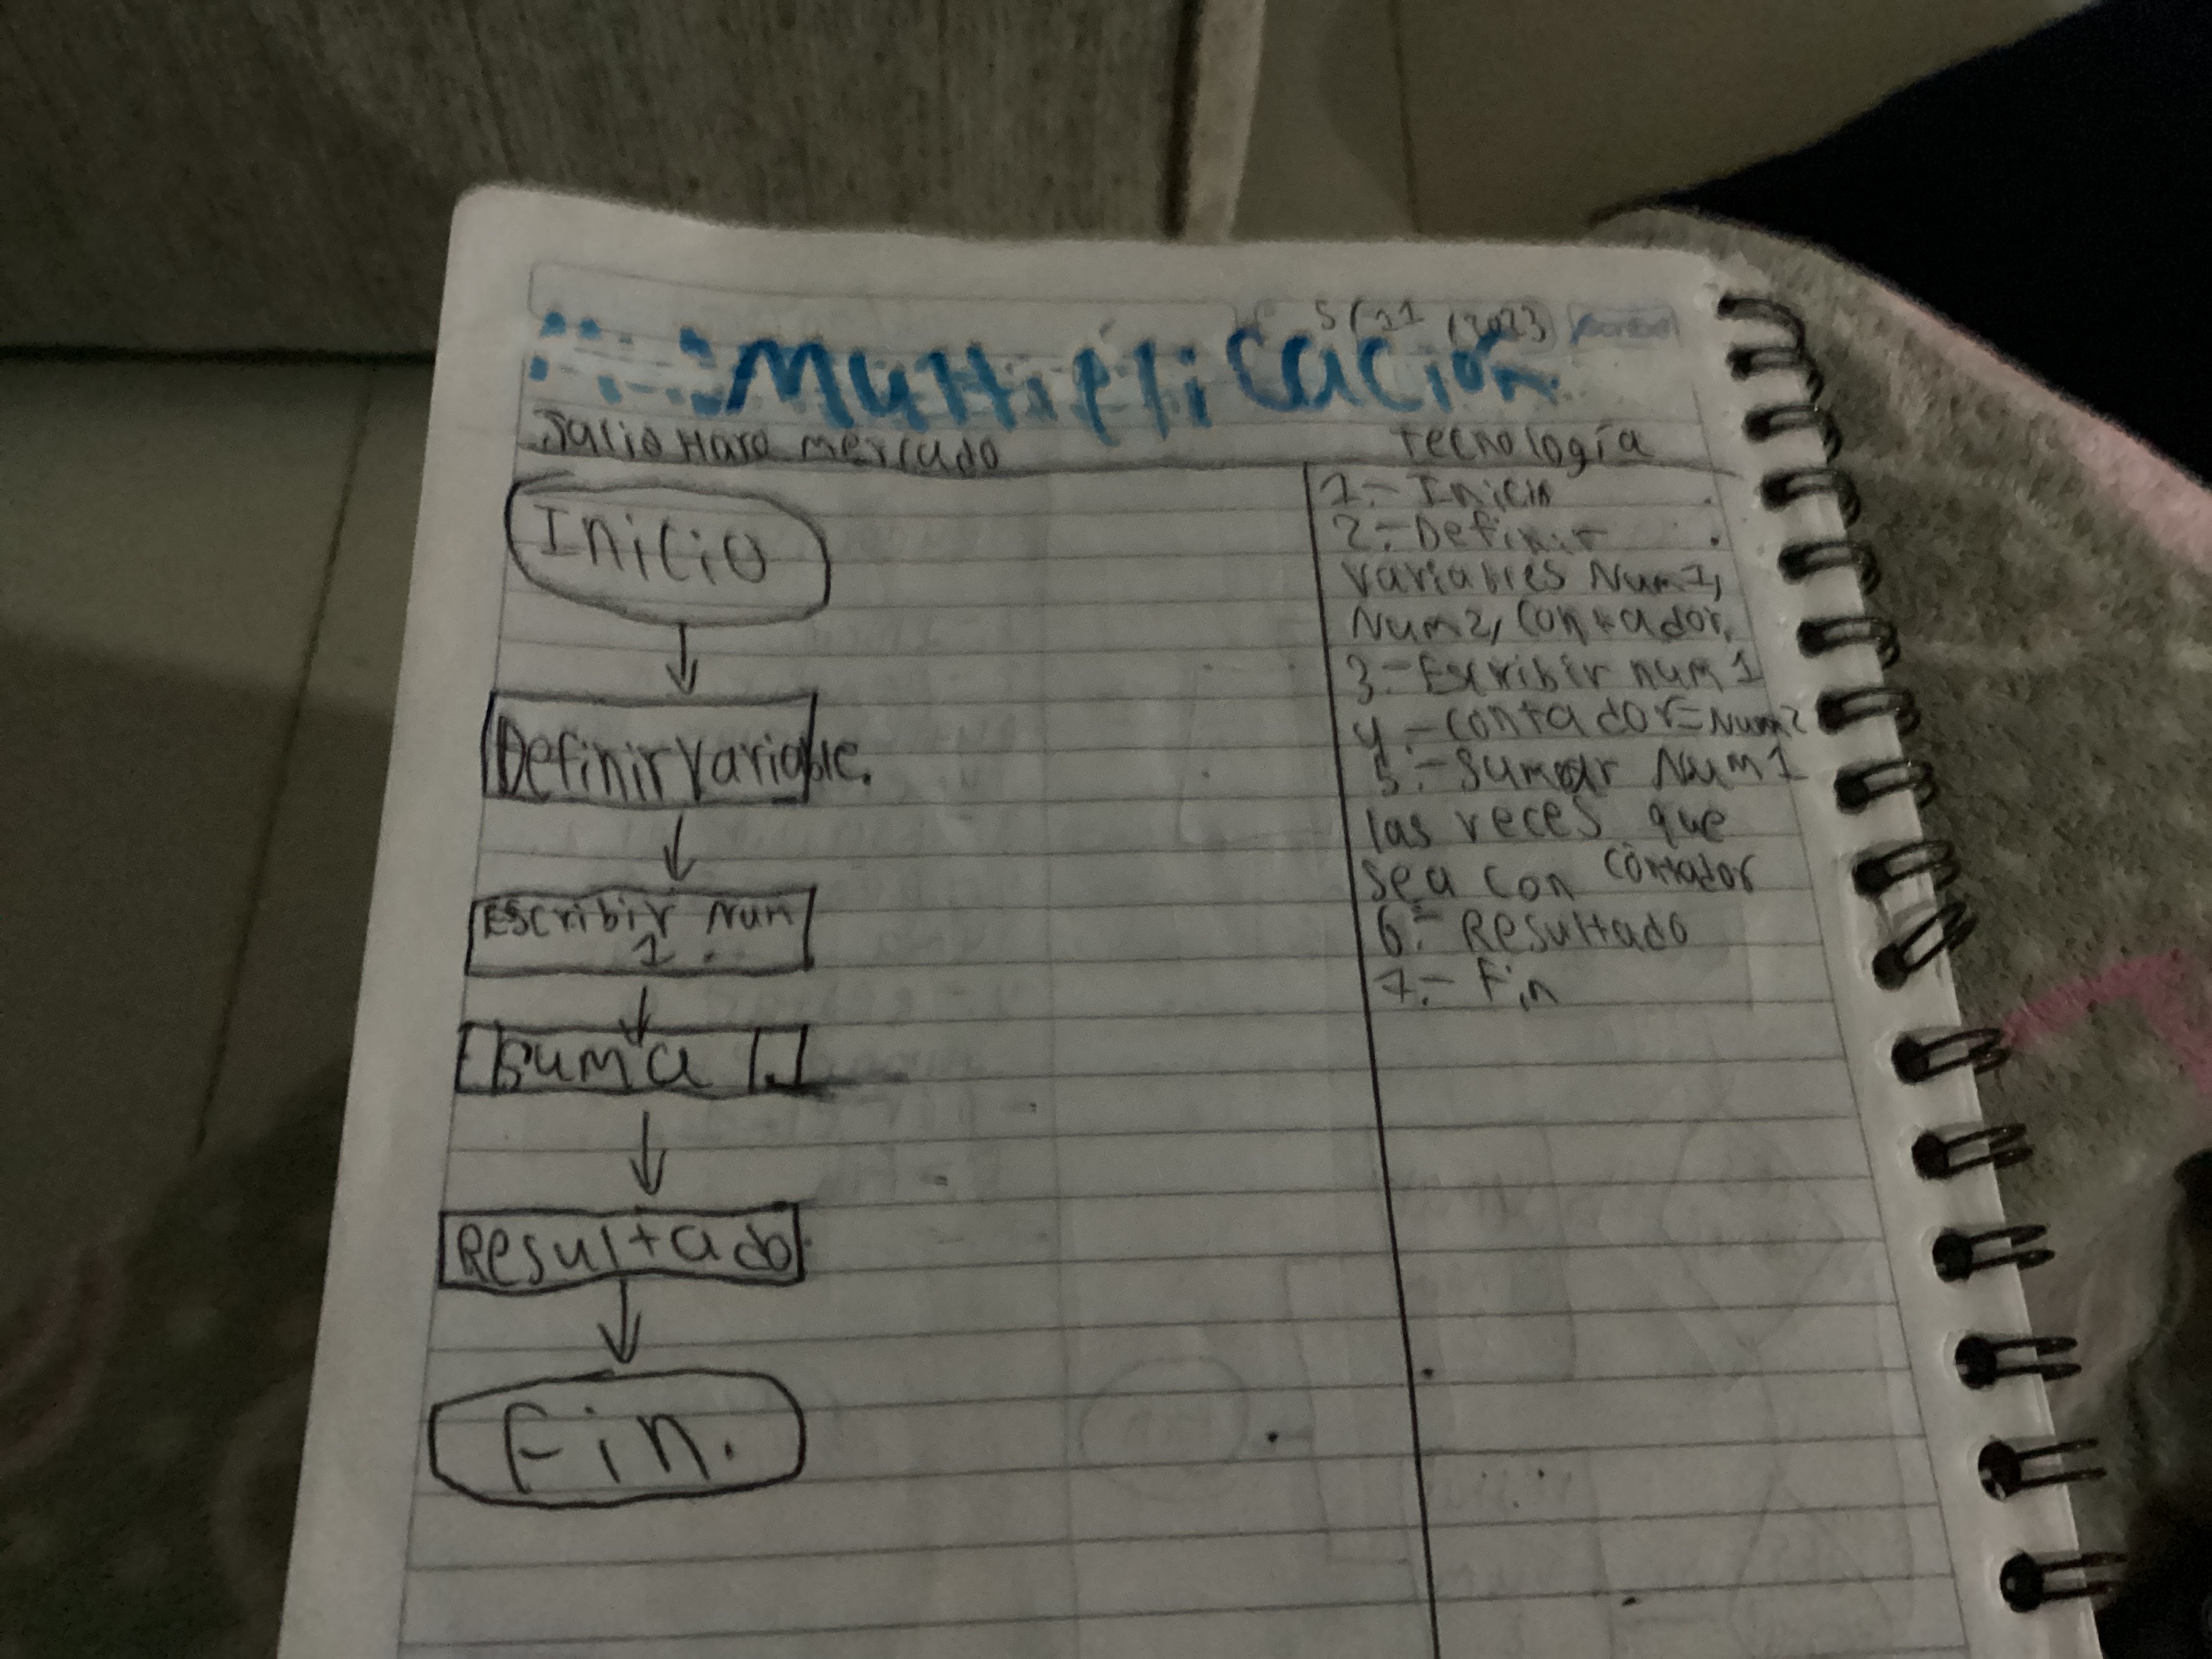 5/11/2023
Multiplicación
Julio Haro mercado
Tecnología
Inicio
Definir variable.
Escribir Num
1.
Suma
Resultado
Fin.
1.- Inicio
2.- Definir
variables Num1,
Num2, Contador,
3.- Escribir num1
4.- contador=Num2
5.- Sumar Num1
las veces que
sea con contador
6.- Resultado
7.- Fin